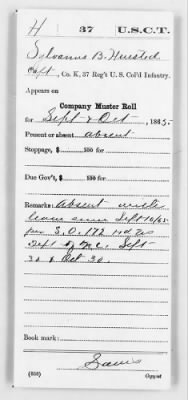 H 37 U.S.C.T.
Sylvanus B. Husted
Capt., Co. K, 37 Reg't U. S. Col'd Infantry.
Appears on
Company Muster Roll
for Sept & Oct, 1865.
Present or absent absent
Stoppage, $ 100 for
Due Gov't, $ 100 for
Remarks: Absent with
leave since Sept 16/65
per S.O. 172 Hd Qrs
Dept of N.C. Sept
30 & Oct 30.
Book mark:
(358) Copyist